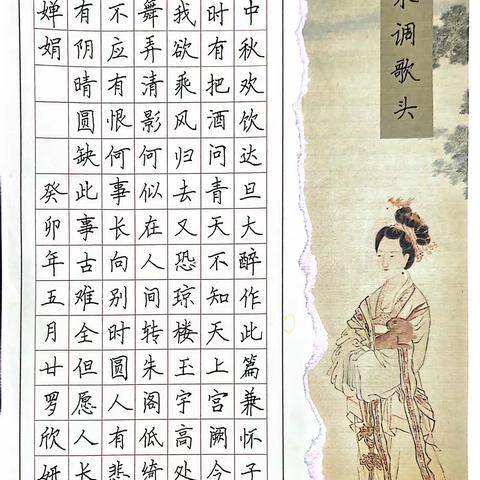 水调歌头
中秋欢饮达旦大醉作此篇兼怀子
时有把酒问青天不知天上宫阙今
我欲乘风归去又恐琼楼玉宇高处
舞弄清影何似在人间转朱阁低绮
不应有恨何事长向别时圆人有悲
有阴晴圆缺此事古难全但愿人长
婵娟
癸卯年五月廿罗欣妍